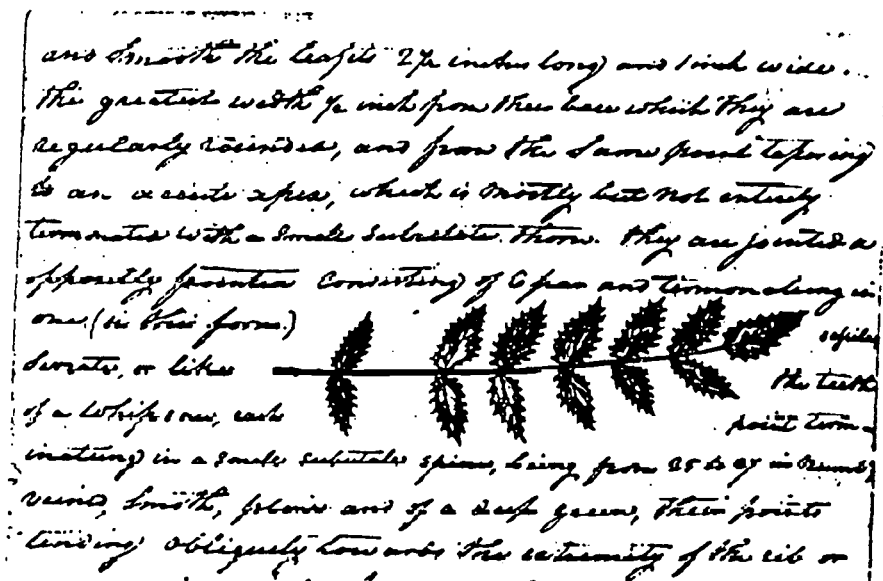 and smooth the leafits 2½ inches long and 1 inch wide.
the greatest width ½ inch from their base which they are
regularly rounded, and from the same point tapering
to an accute apex, which is mostly but not entirely
termonated with a small subulate thorn. they are jointed &
oppositly pinnate consisting of 6 pair and termonateing in
one (in this form.) sessile
serrate, or like the teeth
of a whipsaw, each point term-
inating in a small subulate spine, being from 25 to 27 in numb;
veined, smooth, plane and of a deep green, their points
tending obliquely towards the extremity of the rib or